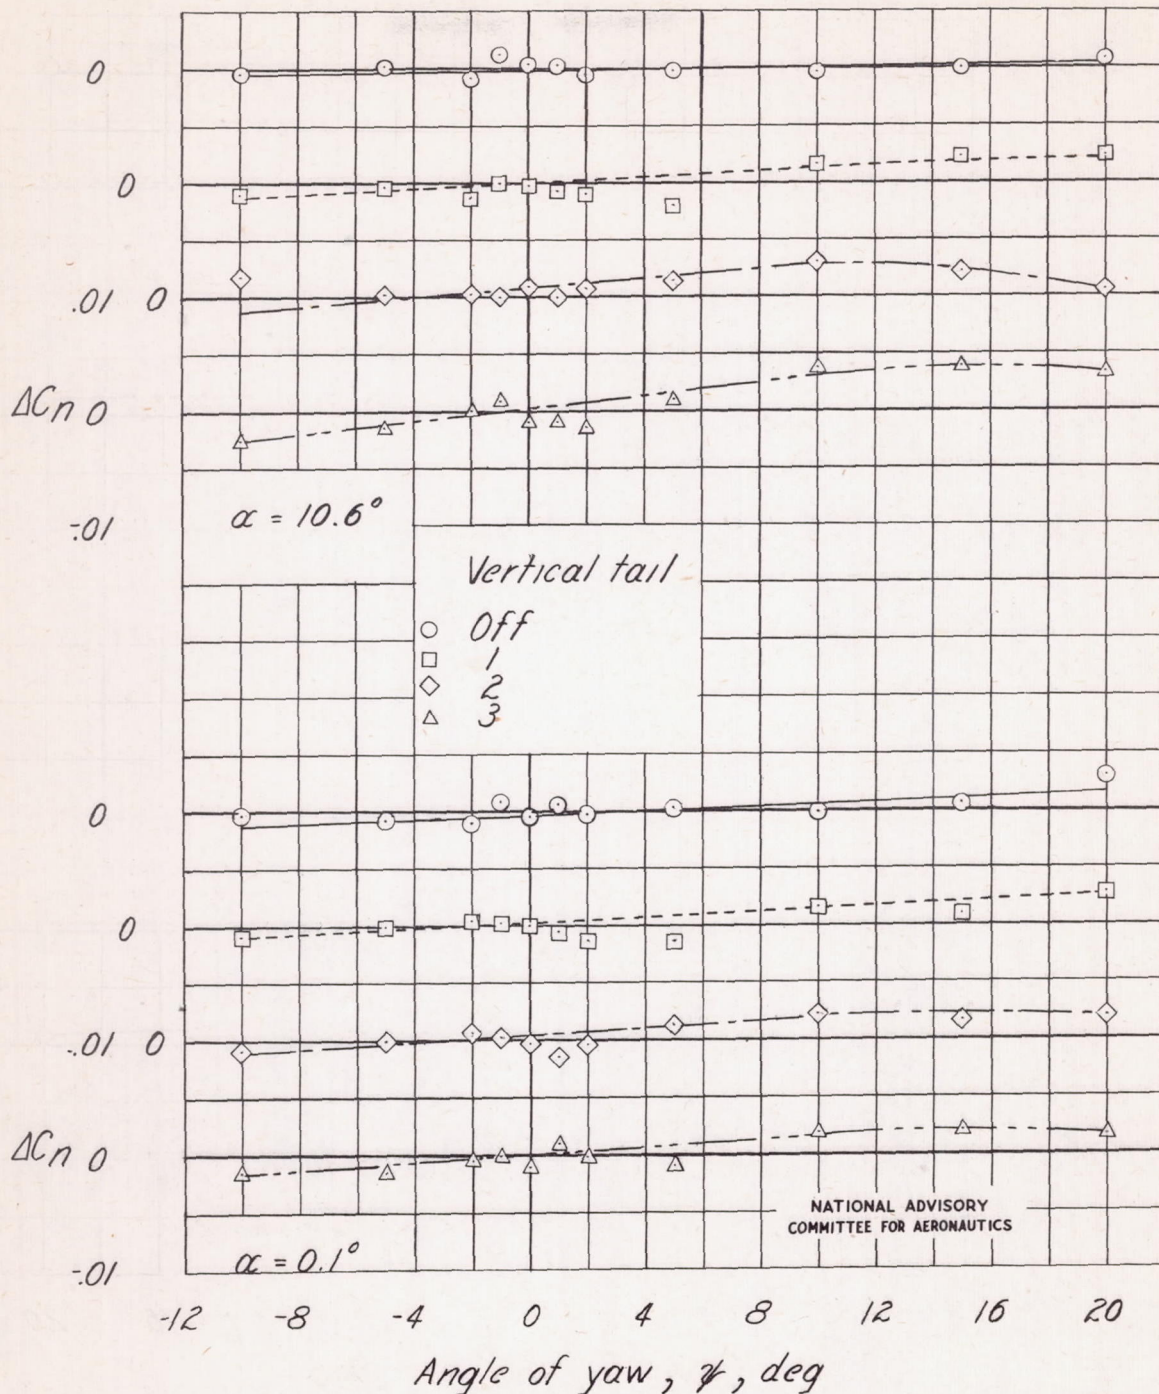 0
0
.01 0
ΔCn 0
-.01
α = 10.6°
Vertical tail
Off
1
2
3
0
0
-.01 0
ΔCn 0
-.01
α = 0.1°
NATIONAL ADVISORY
COMMITTEE FOR AERONAUTICS
-12 -8 -4 0 4 8 12 16 20
Angle of yaw, ψ, deg